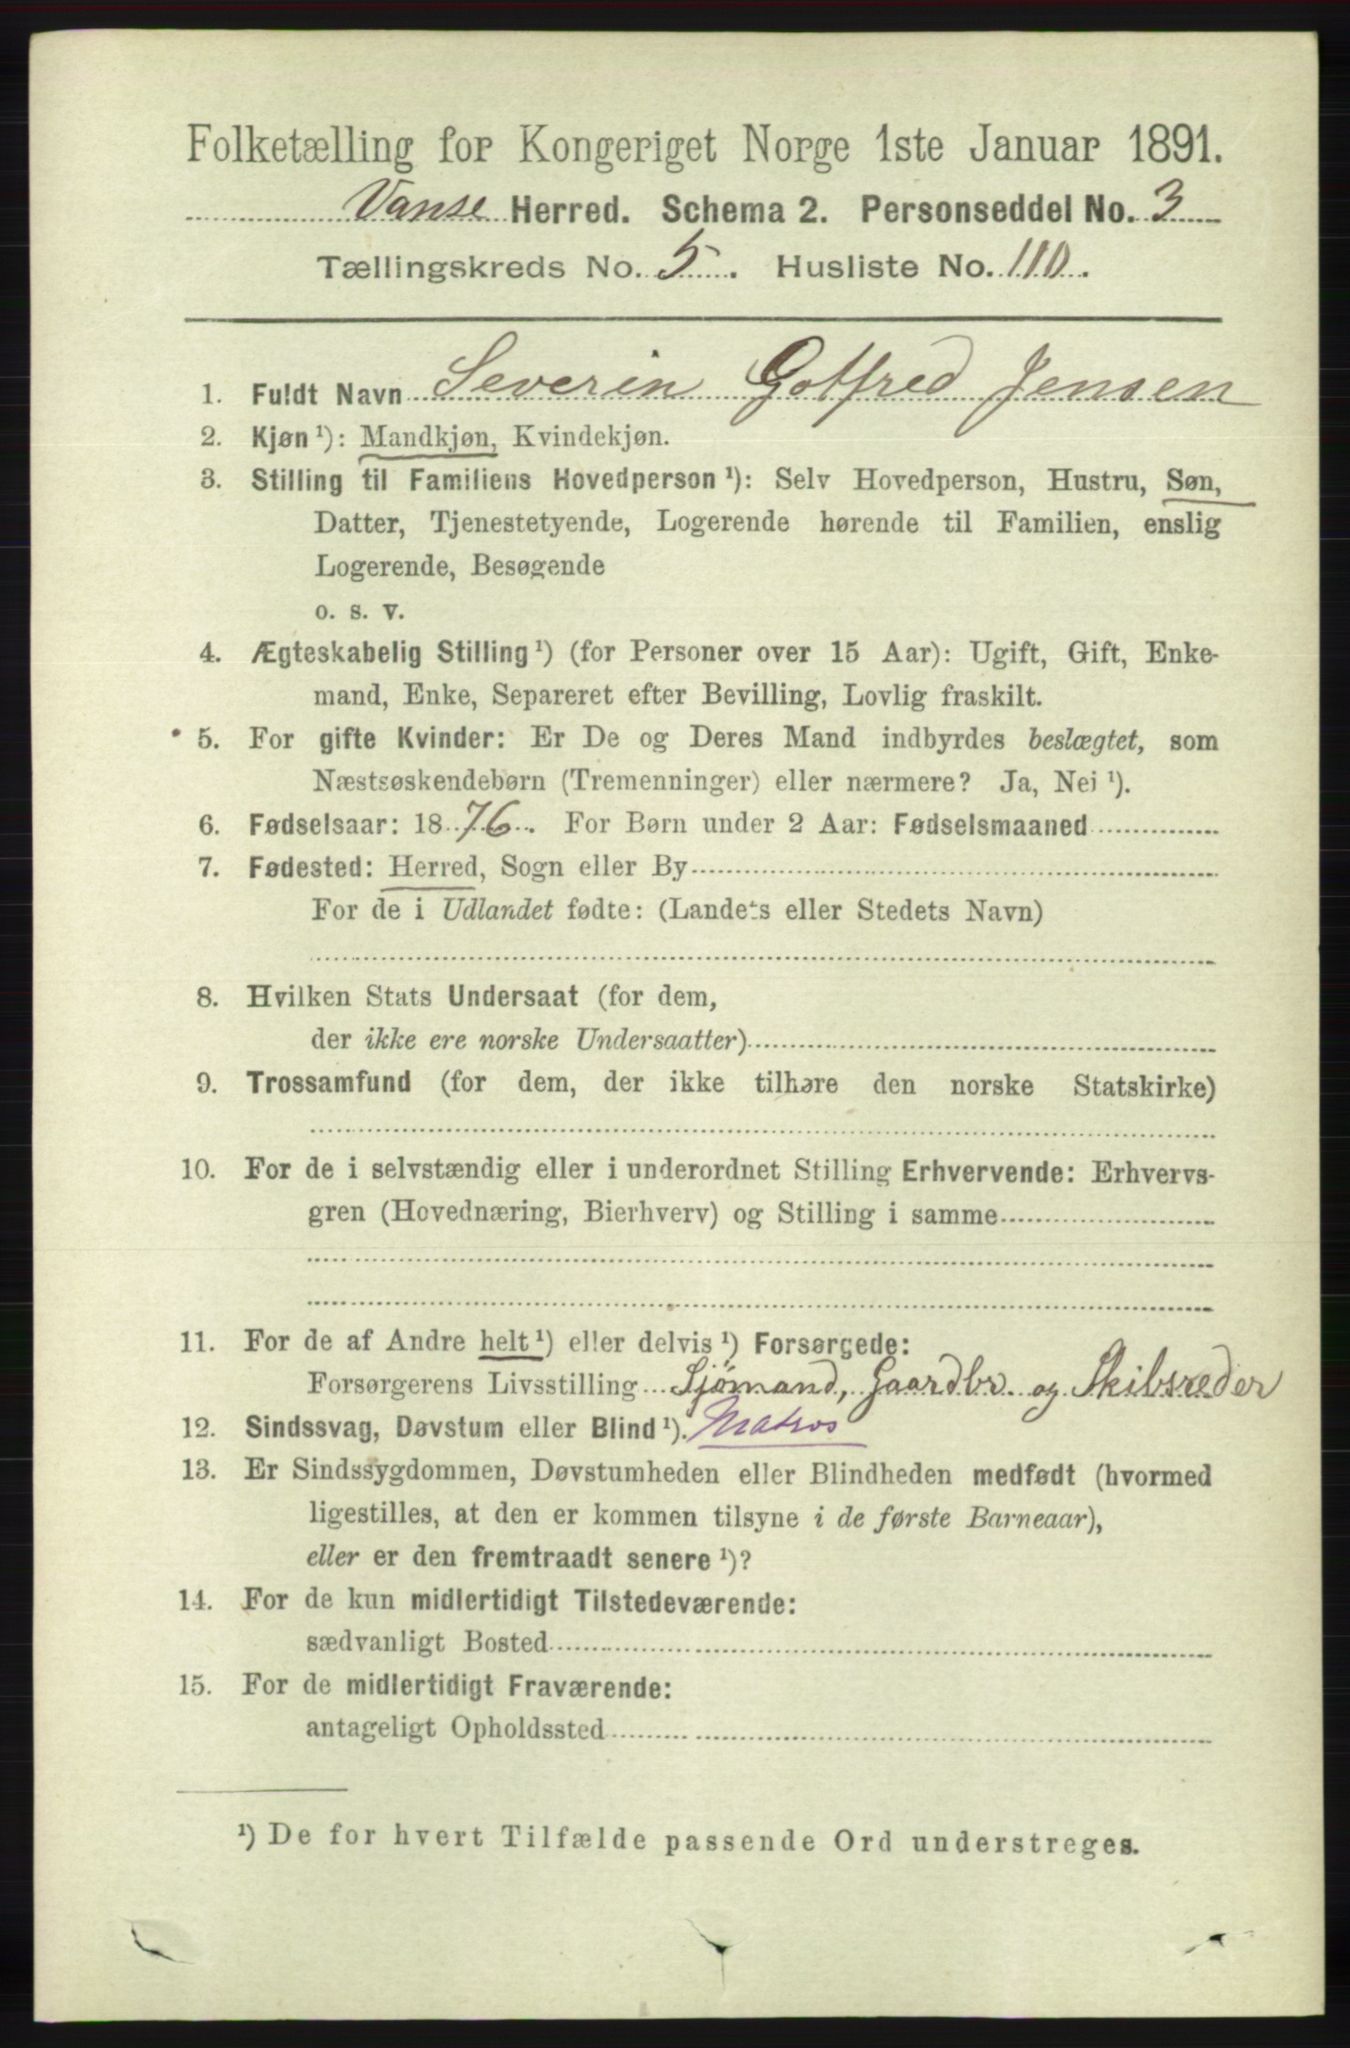 Folketælling for Kongeriget Norge 1ste Januar 1891.
Vanse Herred. Schema 2. Personseddel No. 3
Tællingskreds No. 5. Husliste No. 110.
1. Fuldt Navn Severin Gotfred Jensen
2. Kjøn ¹): Mandkjøn, Kvindekjøn.
3. Stilling til Familiens Hovedperson ¹): Selv Hovedperson, Hustru, Søn,
Datter, Tjenestetyende, Logerende hørende til Familien, enslig
Logerende, Besøgende
o. s. v.
4. Ægteskabelig Stilling ¹) (for Personer over 15 Aar): Ugift, Gift, Enke-
mand, Enke, Separeret efter Bevilling, Lovlig fraskilt.
5. For gifte Kvinder: Er De og Deres Mand indbyrdes beslægtet, som
Næstsøskendebørn (Tremenninger) eller nærmere? Ja, Nei ¹).
6. Fødselsaar: 1876. For Børn under 2 Aar: Fødselsmaaned
7. Fødested: Herred, Sogn eller By
For de i Udlandet fødte: (Landets eller Stedets Navn)
8. Hvilken Stats Undersaat (for dem,
der ikke ere norske Undersaatter)
9. Trossamfund (for dem, der ikke tilhøre den norske Statskirke)
10. For de i selvstændig eller i underordnet Stilling Erhvervende: Erhvervs-
gren (Hovednæring, Bierhverv) og Stilling i samme
11. For de af Andre helt ¹) eller delvis ¹) Forsørgede:
Forsørgerens Livsstilling Sjømand, Gaardbr. og Skibsreder
12. Sindssvag, Døvstum eller Blind ¹). Matros
13. Er Sindssygdommen, Døvstumheden eller Blindheden medfødt (hvormed
ligestilles, at den er kommen tilsyne i de første Barneaar),
eller er den fremtraadt senere ¹)?
14. For de kun midlertidigt Tilstedeværende:
sædvanligt Bosted
15. For de midlertidigt Fraværende:
antageligt Opholdssted
¹) De for hvert Tilfælde passende Ord understreges.